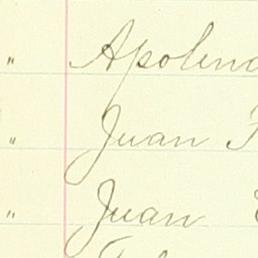 " Apolen
" Juan
" Juan